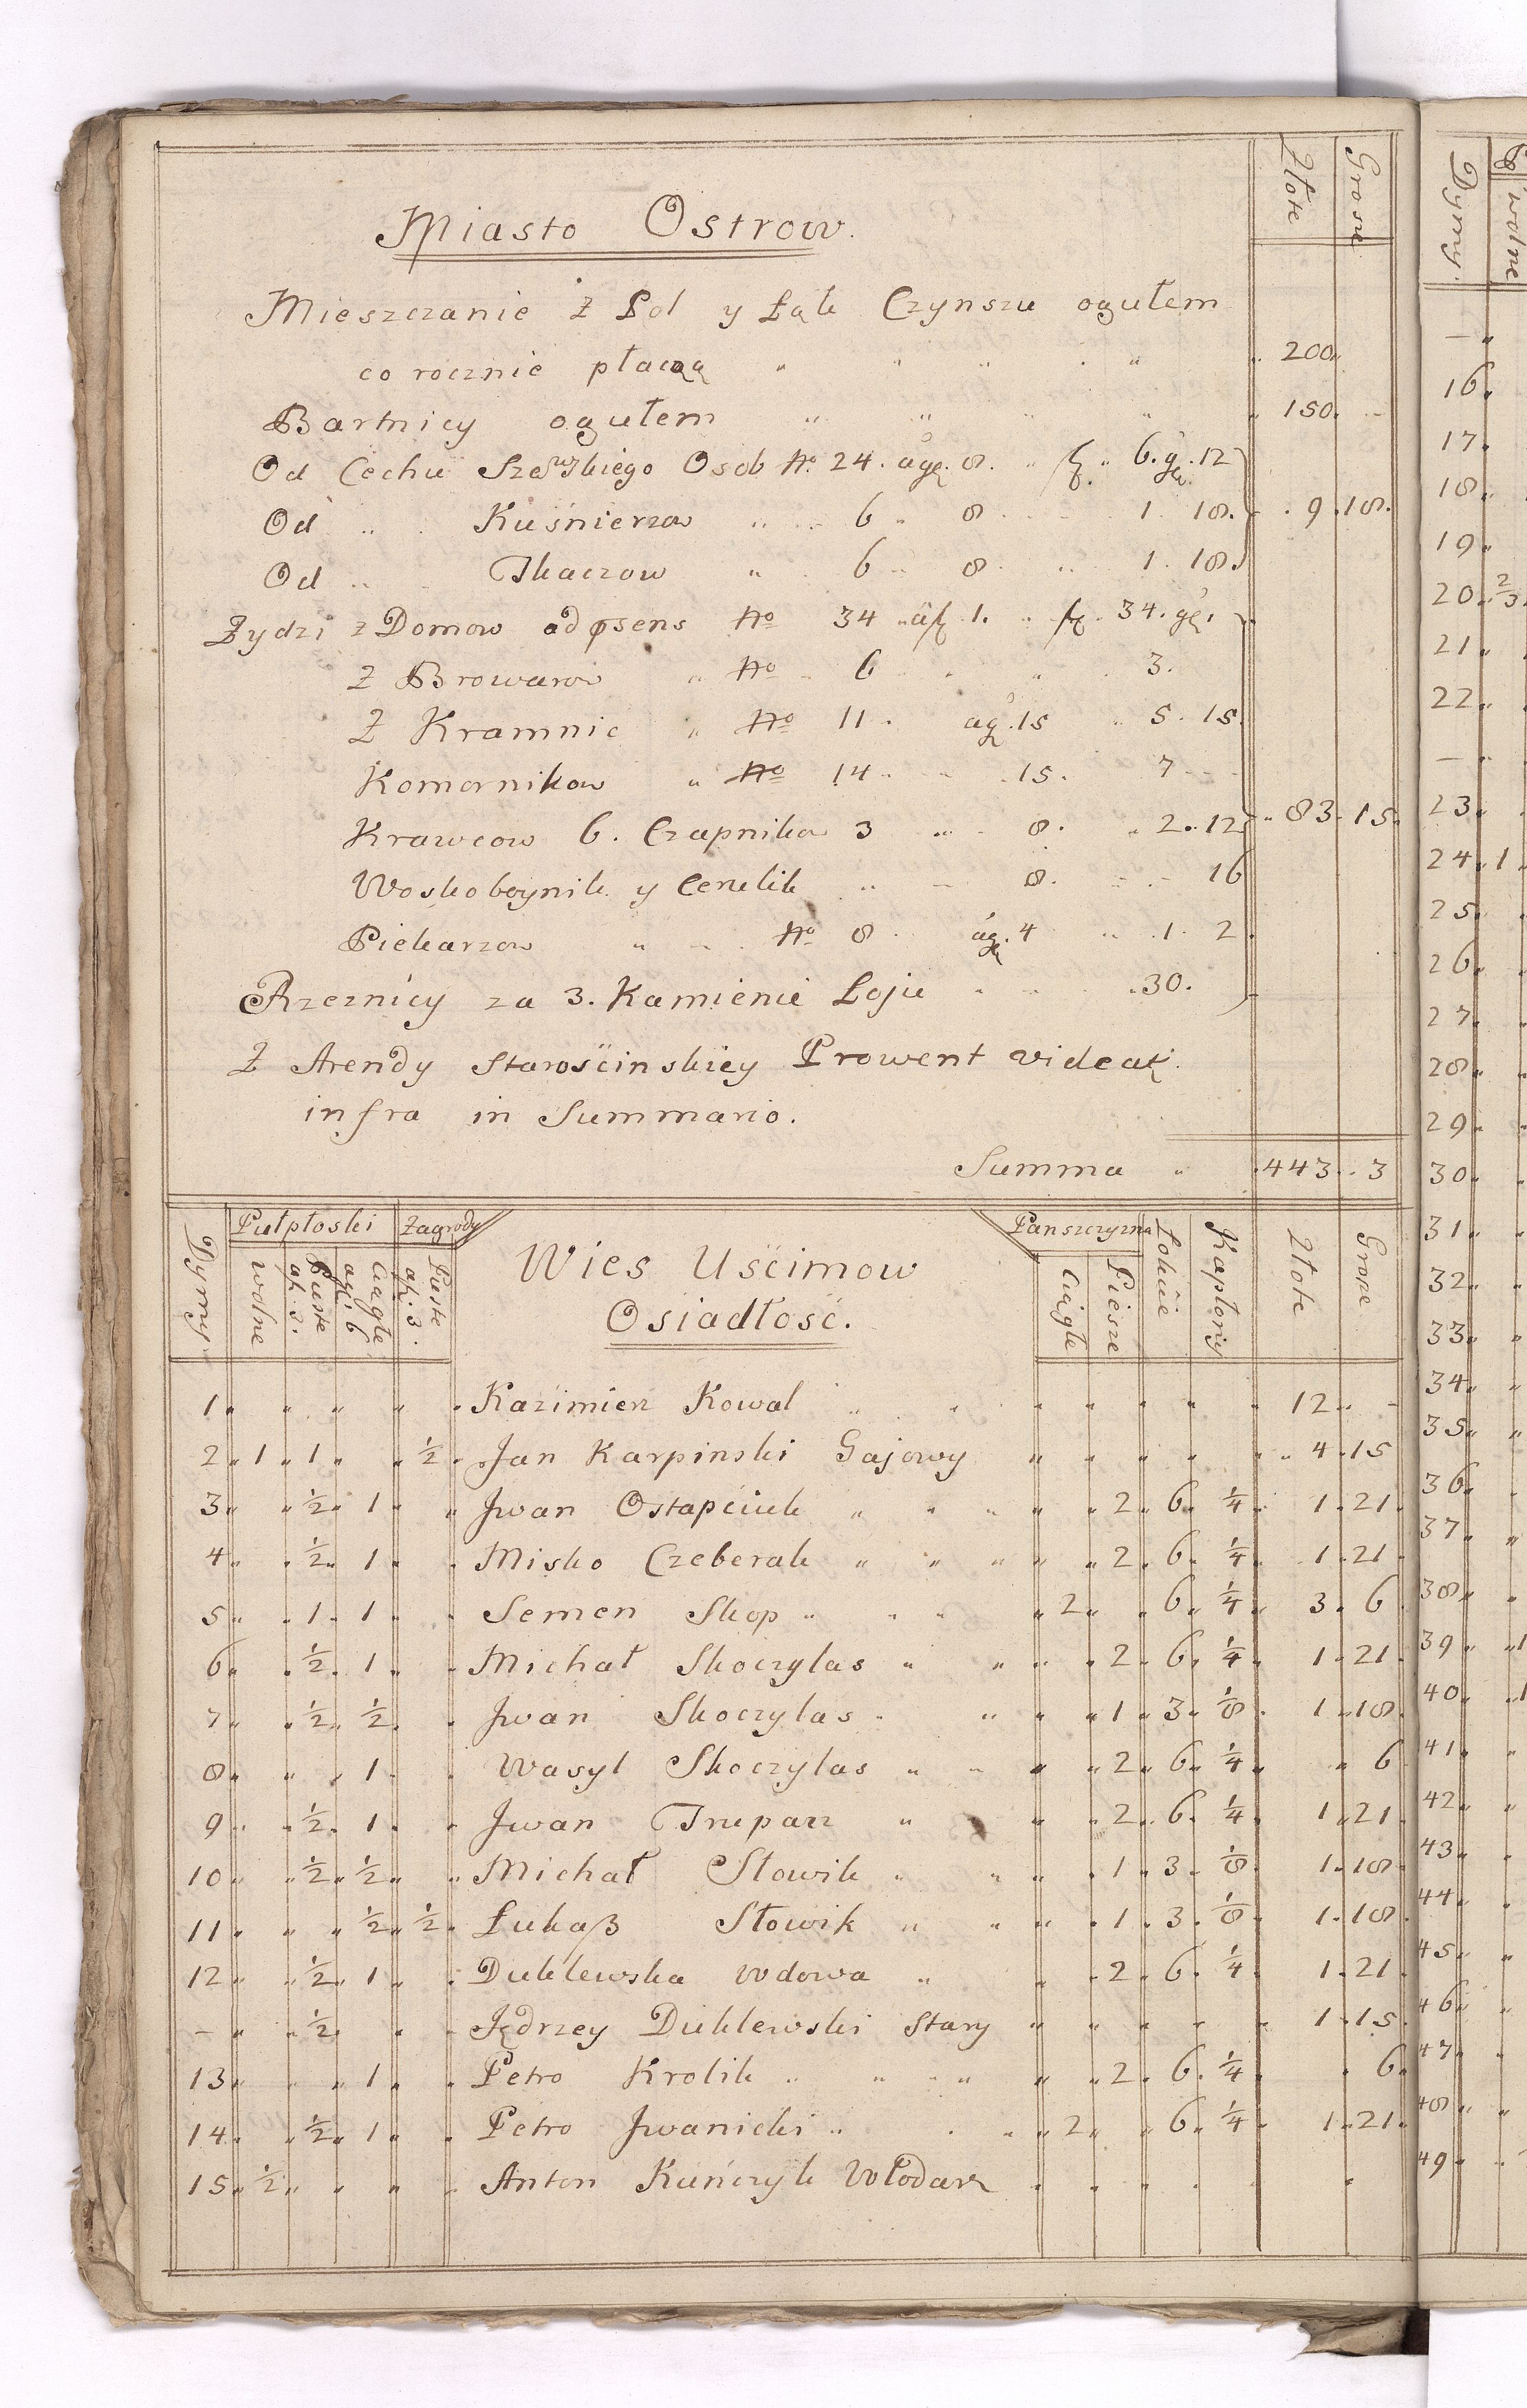 Złote Grosze
Miasto Ostrow.
Mieszczanie z Pol y Łąk Czynszu ogułem
co rocznie płacą " " " " " 200 "
Bartnicy ogułem " " " " " 150 . -
Od Cechu Szewskiego Osob No 24. á gr. 8. " fl. " 6. gr. 12
Od " . Kuśnierzow " - 6 " 8 - - 1. 18. - . 9 . 18.
Od " - Tkaczow " . 6 " 8 - " 1. 18.
Żydzi z Domow adpsens No 34 " á fl. 1. " fl. 34. gr.
Z Browarow " No . 6 " " 3.
Z Kramnic " No 11. á gr. 15 " 5. 15.
Komornikow " No 14 " - . 15. 7 - -
Krawcow 6. Czapnikow 3 " - 8. " 2. 12 " 83. 15.
Woskoboynik y Cerulik " - 8. - - 16
Piekarzow " - No 8 á gr. 4 " 1. 2
Rzeznicy za 3. Kamienie Łoju " " " 30.
Z Arendy Starościnskiey Prowent videat
infra in Summario.
Summa " 443. . 3
Dymy Pułpłoski Zagrody Panszczyzna Łokcie Kapłony Złote Grosze
wolne Puste á fl. 3. Ciągłe á gr. 6 Puste á fl. 3. Ciągłe Piesze
Wies Uścimow
Osiadłość.
1 " " " " " Kazimierz Kowal " " " " " " 12 " -
2 " 1 " 1 " " ½ " Jan Karpinski Gajowy " " " " " 4 . 15
3 " " ½ " 1 " " Jwan Ostapciuk " " " " " 2 " 6 " ¼ " 1 . 21
4 " " ½ " 1 " " Misko Czeberak " " " " " 2 " 6 " ¼ " 1 . 21
5 " " 1 " 1 " " Semen Skop " " " " 2 " " 6 " ¼ " 3 . 6
6 " " ½ " 1 " " Michał Skoczylas " " " " 2 " 6 " ¼ " 1 . 21
7 " " ½ " ½ " " Jwan Skoczylas " " " " 1 " 3 " ⅛ . 1 . 18
8 " " " 1 " " Wasyl Skoczylas " " " " 2 " 6 " ¼ " " 6
9 " " ½ " 1 " " Jwan Truparz " " " " 2 " 6 " ¼ " 1 . 21
10 " " ½ " ½ " " Michał Słowik " " " " 1 " 3 " ⅛ " 1 . 18
11 " " " ½ " ½ " Łukaß Słowik " " " " 1 " 3 " ⅛ " 1 . 18
12 " " ½ " 1 " " Duklewska wdowa " " " 2 " 6 " ¼ " 1 . 21
- " " ½ " " " Jędrzey Duklewski Stary " " " " " 1 . 15
13 " " " 1 " " Petro Krolik " " " " " 2 " 6 " ¼ " . 6
14 " " ½ " 1 " " Petro Jwanicki " " " 2 " " 6 " ¼ " 1 . 21
15 " ½ " " " " Anton Kunczyk Włodarz " " " " "
Dymy wolne
- "
16
17
18
19
20 ⅔
21
22
- "
23
24 1
25
26
27
28
29
30
31
32
33
34
35
36
37
38
39
40
41
42
43
44
45
46
47
48
49